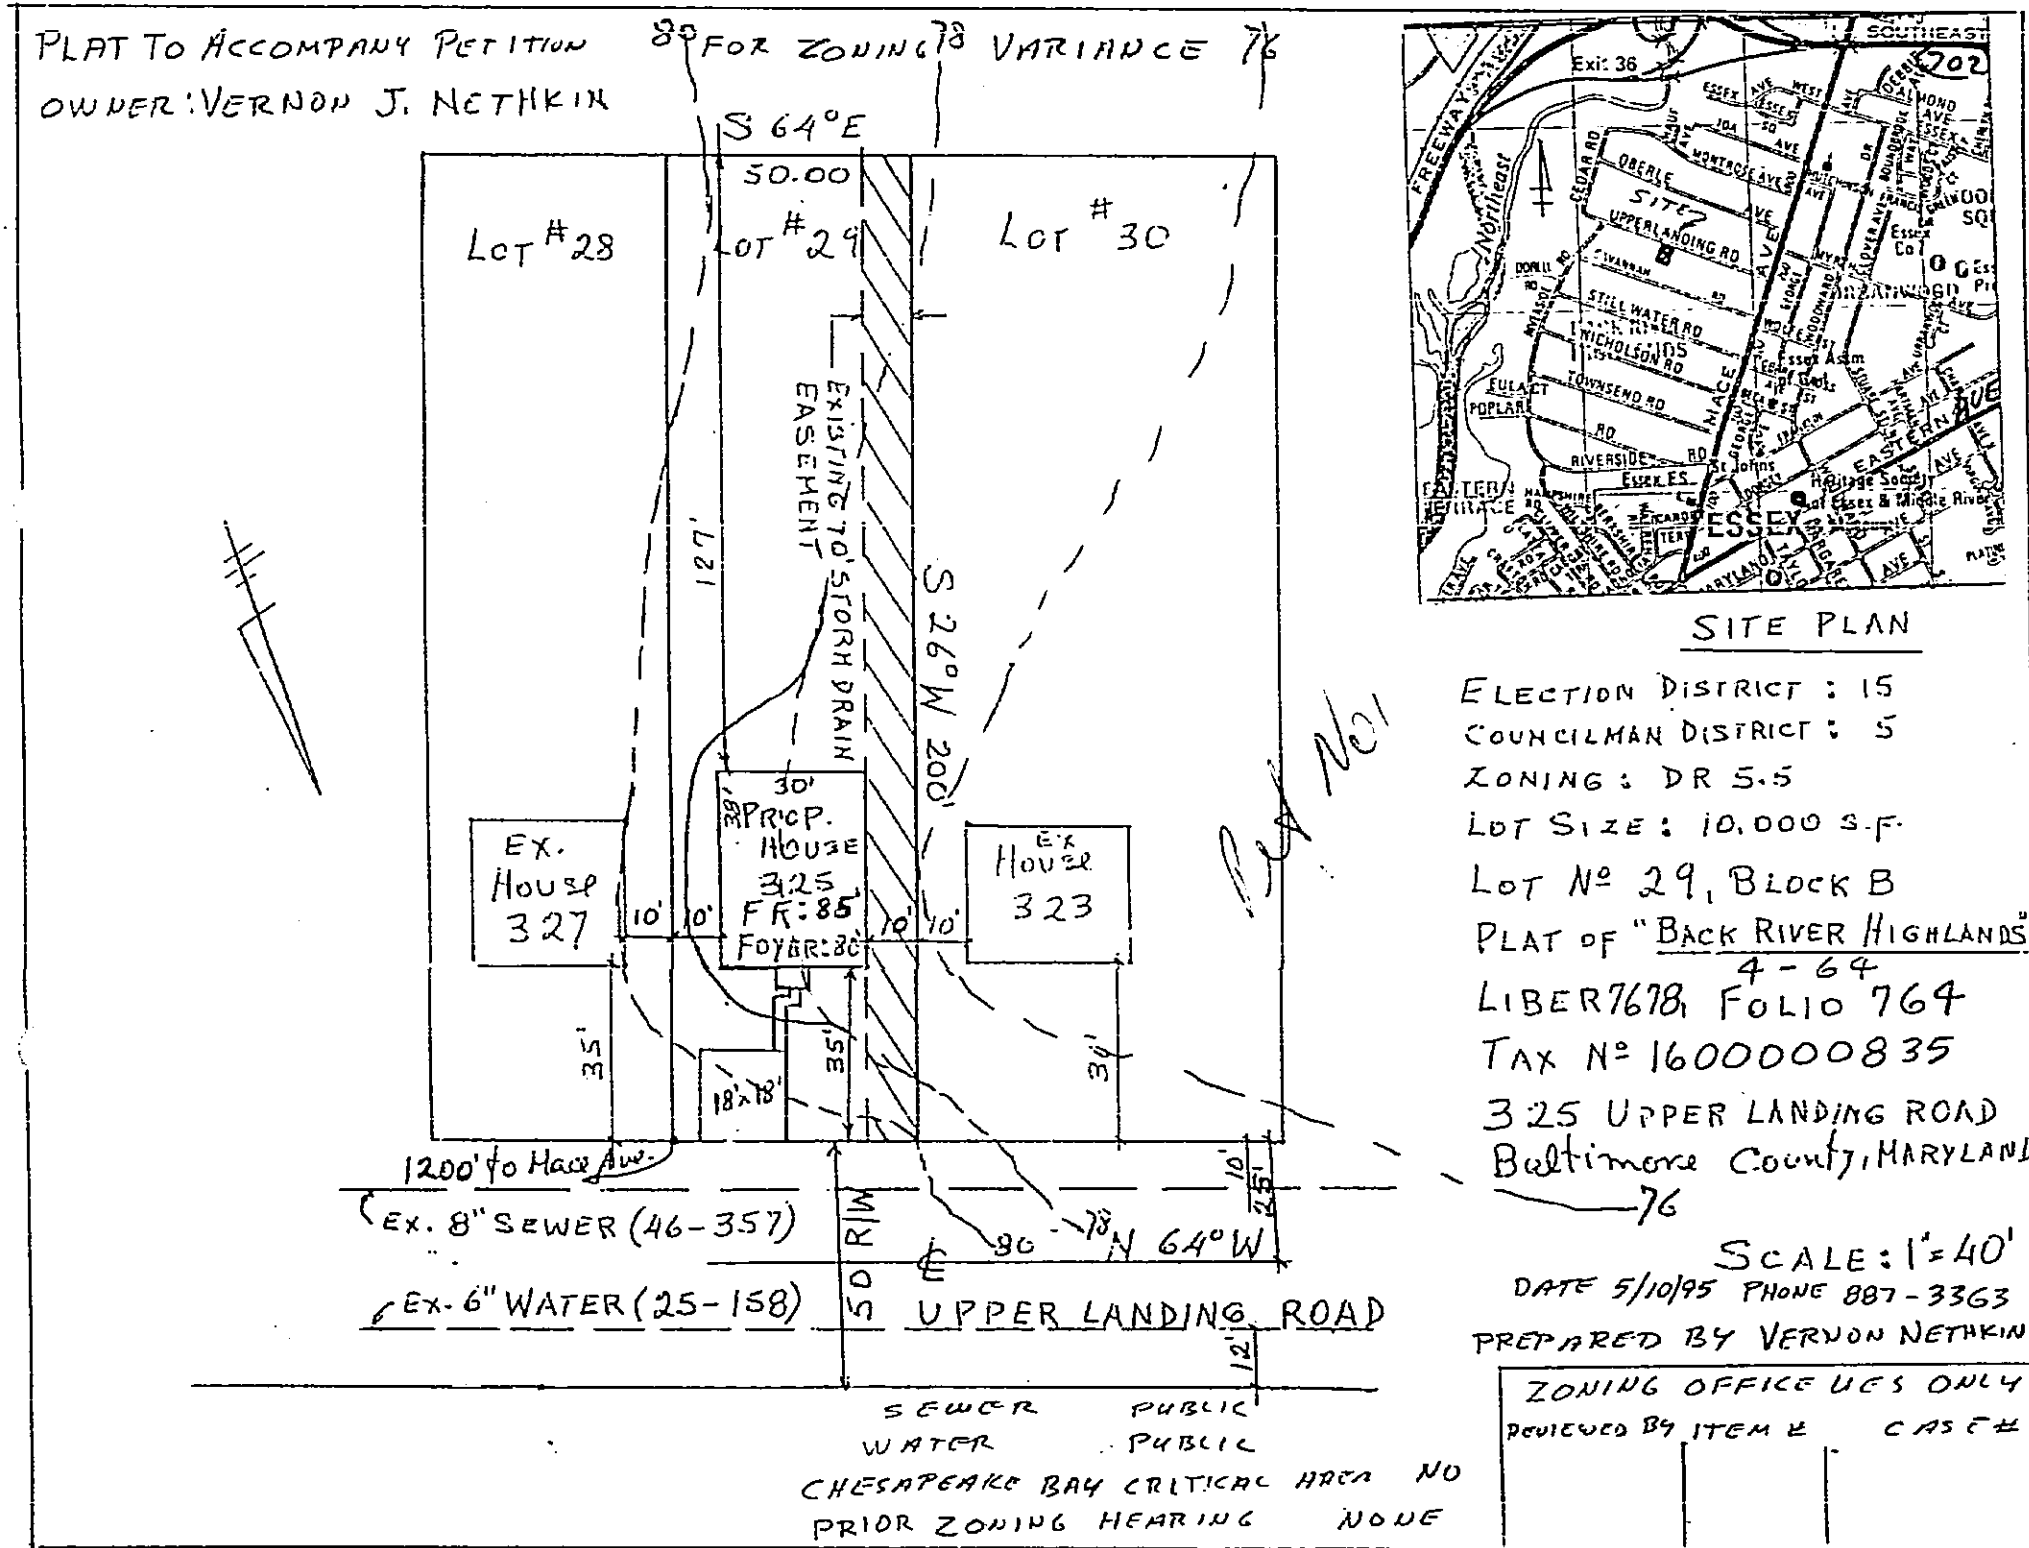 PLAT TO ACCOMPANY PETITION FOR ZONING VARIANCE
OWNER: VERNON J. NETHKIN
80
78
76
S 64°E
50.00
LOT #28
LOT #29
LOT #30
127'
EXISTING 10' STORM DRAIN
EASEMENT
S 26°W 200'
EX.
HOUSE
327
30'
38'
PROP.
HOUSE
325
FF: 85
FOYER: 80
EX
HOUSE
323
10'
10'
10'
10'
35'
35'
18'x18'
1200' to Mace Ave.
EX. 8" SEWER (46-357)
EX. 6" WATER (25-158)
50 R/W
80
78
N 64°W
10'
25'
76
UPPER LANDING ROAD
12'
SEWER PUBLIC
WATER PUBLIC
CHESAPEAKE BAY CRITICAL AREA NO
PRIOR ZONING HEARING NONE
SOUTHEAST
702
Exit 36
FREEWAY
Northeast
CEDAR RD
OBERLE AVE
MONTROSE AVE
SITE
UPPER LANDING RD
SAVANNAH RD
STILL WATER RD
NICHOLSON RD
TOWNSEND RD
POPLAR RD
RIVERSIDE RD
Essex ES
MACE AVE
St Johns
Heritage Society
of Essex & Middle River
EASTERN AVE
ESSEX
SITE PLAN
ELECTION DISTRICT: 15
COUNCILMAN DISTRICT: 5
ZONING: DR 5.5
LOT SIZE: 10,000 S.F.
LOT Nº 29, BLOCK B
PLAT OF "BACK RIVER HIGHLANDS"
4-64
LIBER 7678, FOLIO 764
TAX Nº 1600000835
325 UPPER LANDING ROAD
Baltimore County, MARYLAND
SCALE: 1"=40'
DATE 5/10/95 PHONE 887-3363
PREPARED BY VERNON NETHKIN
ZONING OFFICE UES ONLY
REVIEWED BY ITEM # CASE #